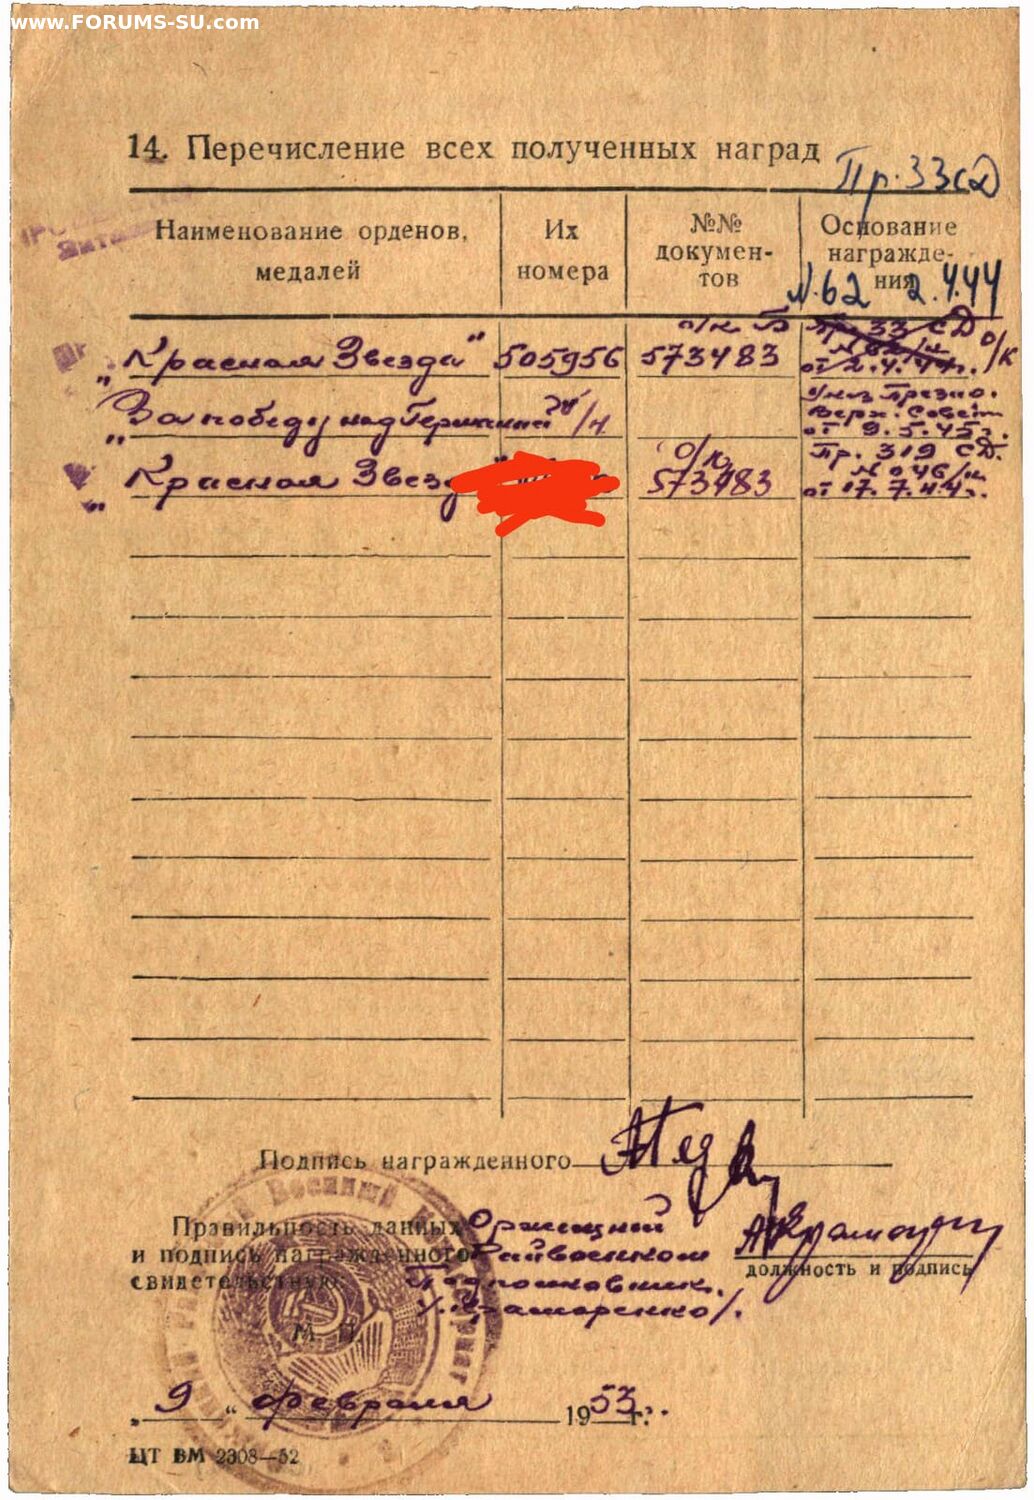 www.FORUMS-SU.com
14. Перечисление всех полученных наград
Пр. 33 сд
Наименование орденов, медалей
Их номера
№№ докумен-тов
Основание награжде-ния
N.62 2.4.44
„Красная Звезда" 505956 о/к. Б 573483 Пр. 33 СД от 2.4.44г. о/к
„За победу над Германией" /н Указ Презид. Верх. Совета от 9.5.45г.
„Красная Звезда о/к 573483 Пр. 319 СД. N 046/н от 17.7.44г.
Подпись награжденного
Правильность данных
и подпись награжденного
свидетельствую:
Оржицкий
Райвоенком
Подполковник.
/Крамаренко/.
должность и подпись
М. П.
„ 9 “ февраля 1953 г.
ЦТ ВМ 2308—52